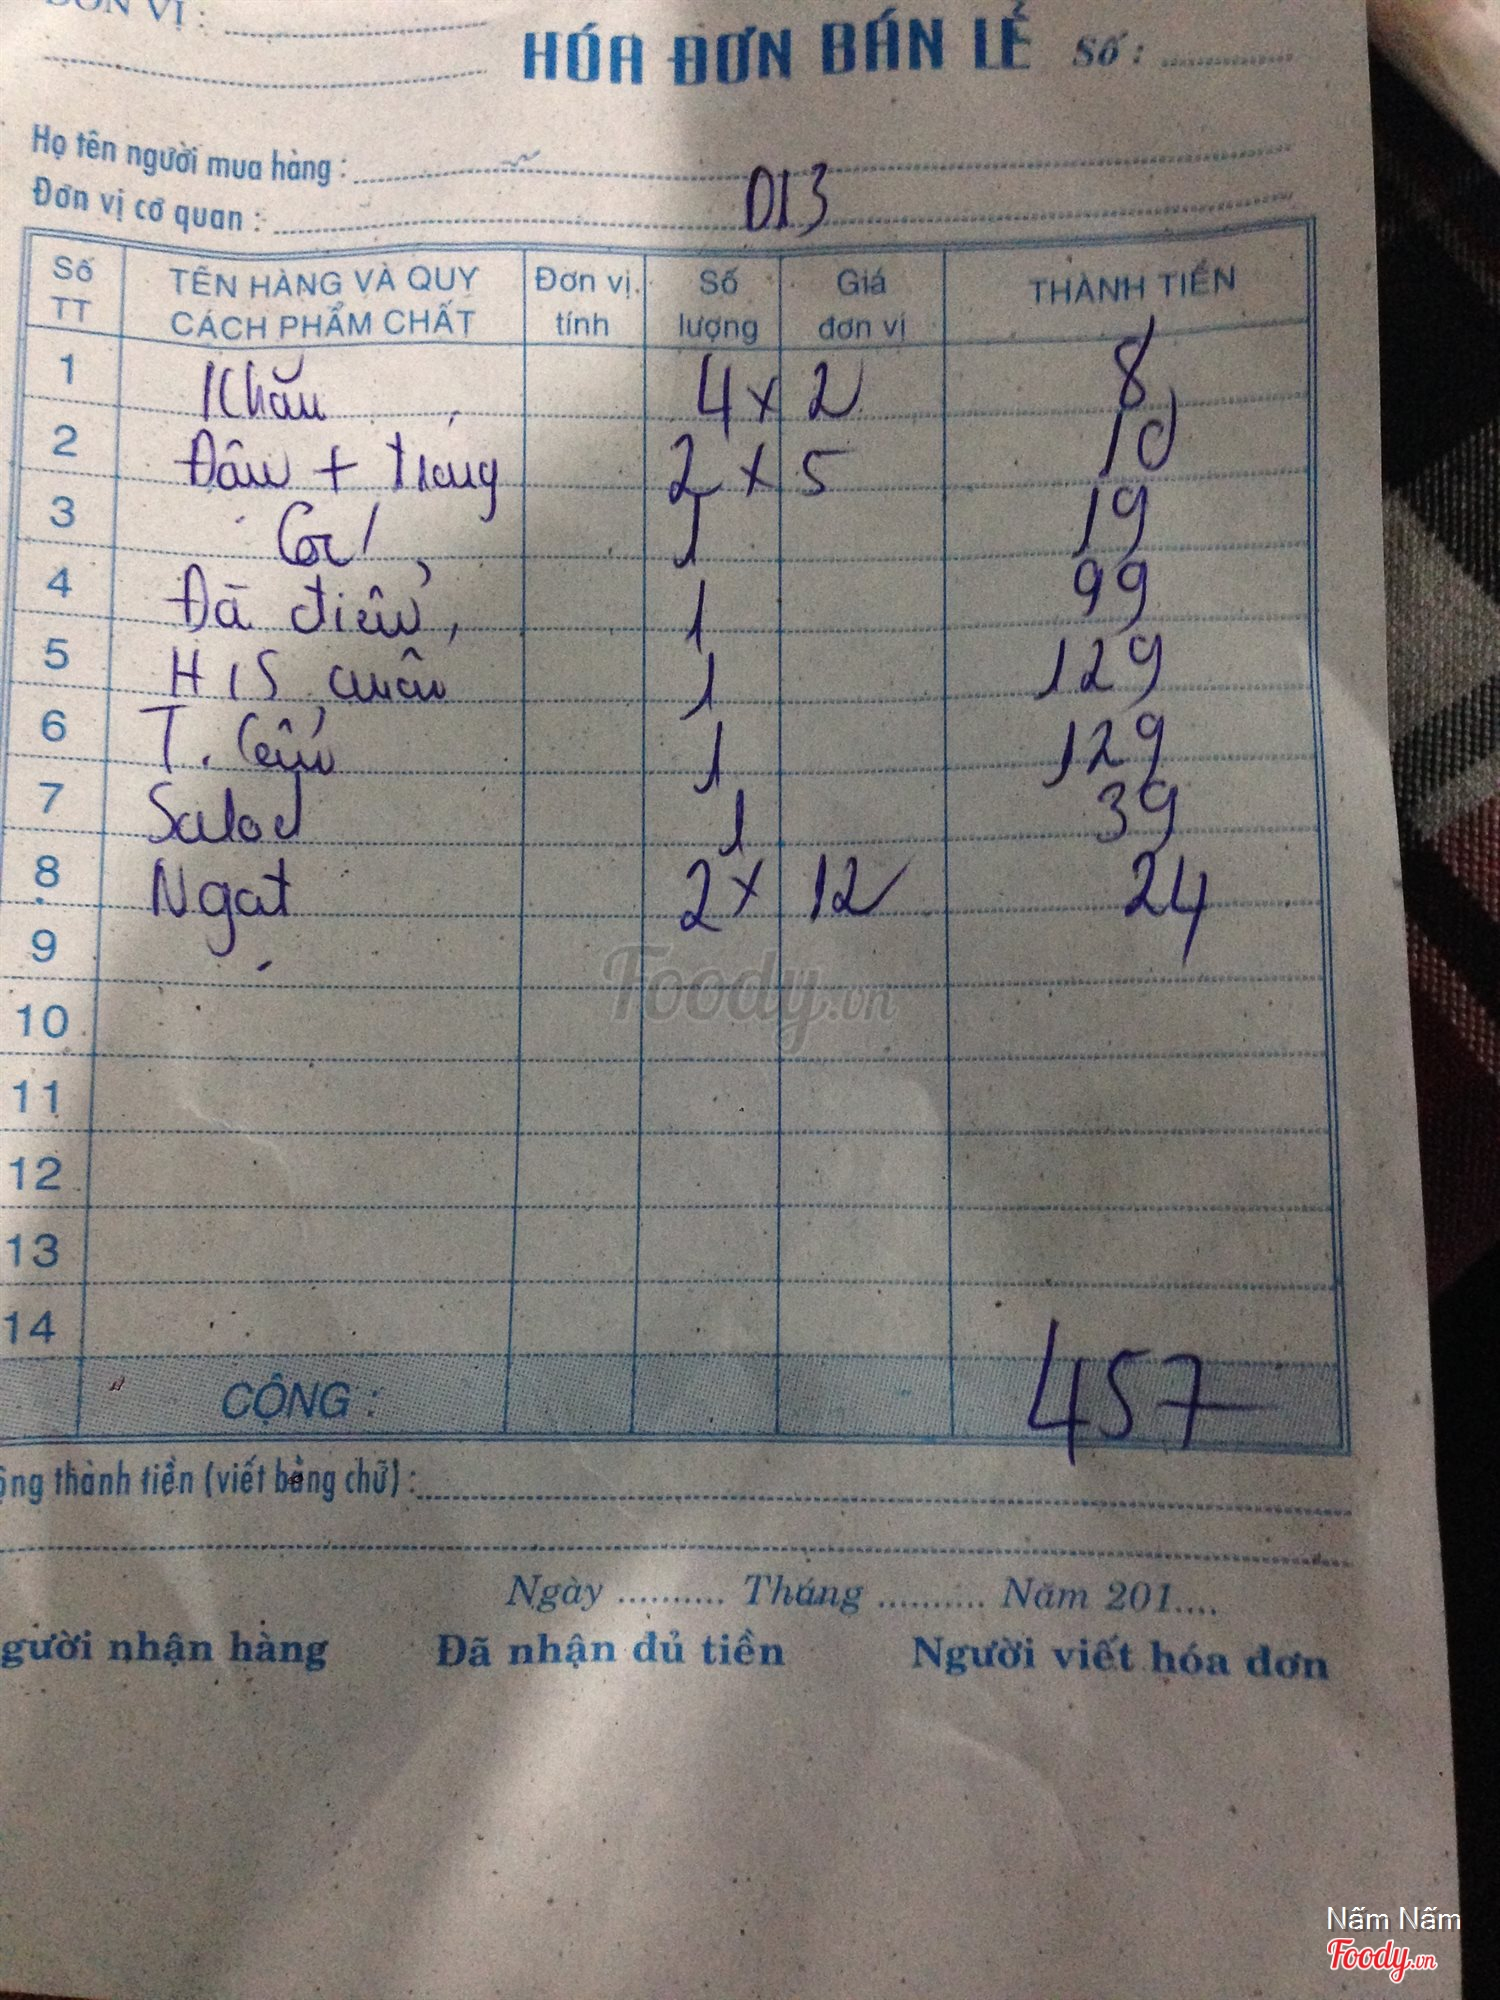 ĐƠN VỊ :
HÓA ĐƠN BÁN LẺ Số :
Họ tên người mua hàng :
Đơn vị cơ quan : D13
Số TT TÊN HÀNG VÀ QUY CÁCH PHẨM CHẤT Đơn vị tính Số lượng Giá đơn vị THÀNH TIỀN
1 Khăn 4 x 2 8
2 Đậu + trứng 2 x 5 10
3 1 19
4 Đà điểu 1 99
5 1 129
6 T. Cừu 1 129
7 Salad 1 39
8 Ngọt 2 x 12 24
9
10
11
12
13
14
CỘNG : 457
ộng thành tiền (viết bằng chữ) :
Ngày .......... Tháng .......... Năm 201....
gười nhận hàng Đã nhận đủ tiền Người viết hóa đơn
Foody.vn
Nấm Nấm
Foody.vn